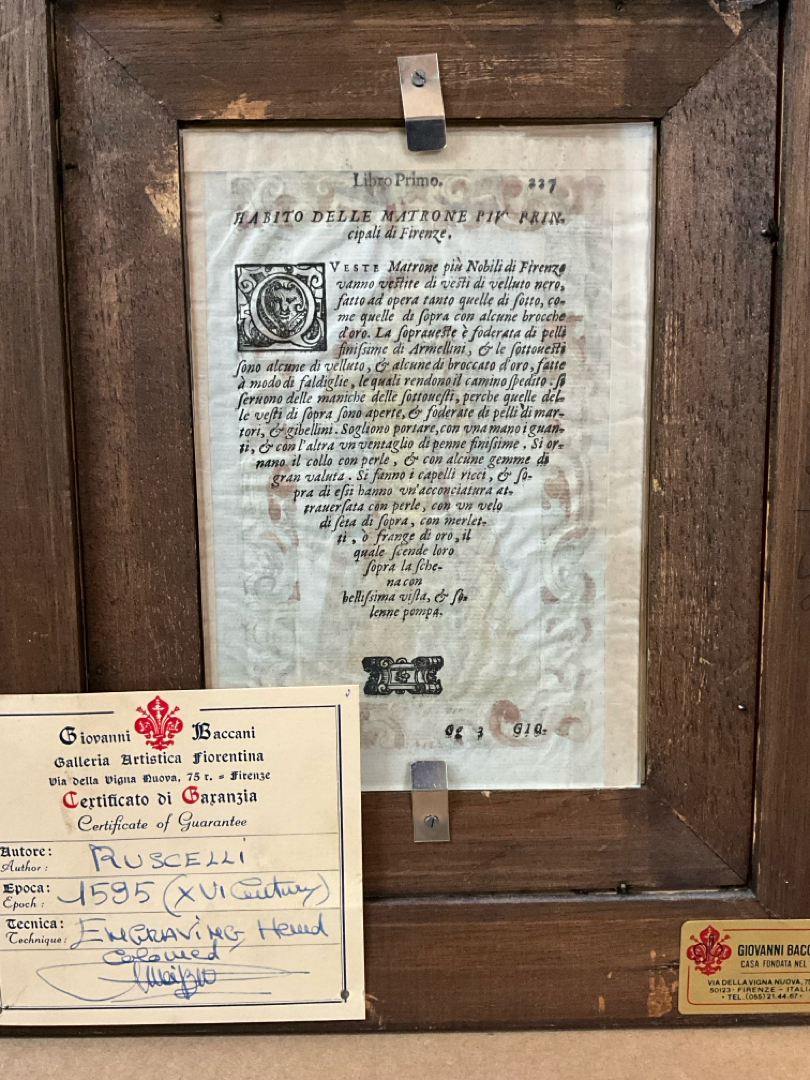 Libro Primo. 227
HABITO DELLE MATRONE PIV' PRIN-
cipali di Firenze.
QVESTE Matrone più Nobili di Firenze
vanno vestite di vesti di velluto nero,
fatto ad opera tanto quelle di sotto, co-
me quelle di sopra con alcune brocche
d'oro. La sopraueste è foderata di pelli
finissime di Armellini, & le sottouesti
sono alcune di velluto, & alcune di broccato d'oro, fatte
à modo di faldiglie, le quali rendono il camino spedito. si
seruono delle maniche delle sottouesti, perche quelle del-
le vesti di sopra sono aperte, & foderate di pelli di mar-
tori, & gibellini. Sogliono portare, con vna mano i guan-
ti, & con l'altra vn ventaglio di penne finissime. Si or-
nano il collo con perle, & con alcune gemme di
gran valuta. Si fanno i capelli ricci, & so-
pra di essi hanno vn'acconciatura at-
trauersata con perle, con vn velo
di seta di sopra, con merlet-
ti, ò frange di oro, il
quale scende loro
sopra la sche-
na con
bellissima vista, & so-
lenne pompa.
Gg 3 GIO-
Giovanni Baccani
Galleria Artistica Fiorentina
Via della Vigna Nuova, 75 r. = Firenze
Certificato di Garanzia
Certificate of Guarantee
Autore:
Author: RUSCELLI
Epoca:
Epoch: 1595 (XVI Century)
Tecnica:
Technique: ENGRAVING, Hand
Coloured
GIOVANNI BACC
CASA FONDATA NEL
VIA DELLA VIGNA NUOVA, 75
50123 - FIRENZE - ITALIA
• TEL. (055) 21.44.67 •